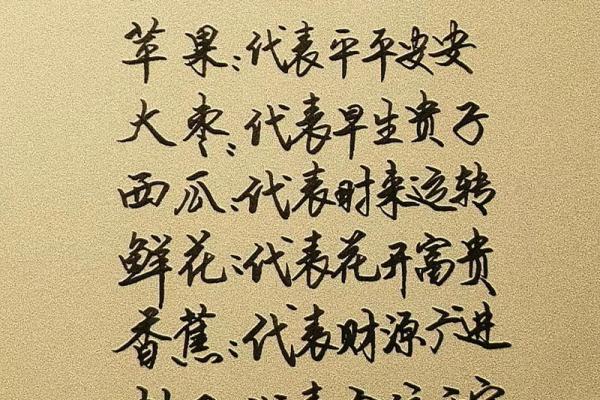 苹果:代表平平安安
大枣:代表早生贵子
西瓜:代表时来运转
鲜花:代表花开富贵
香蕉:代表财源广进